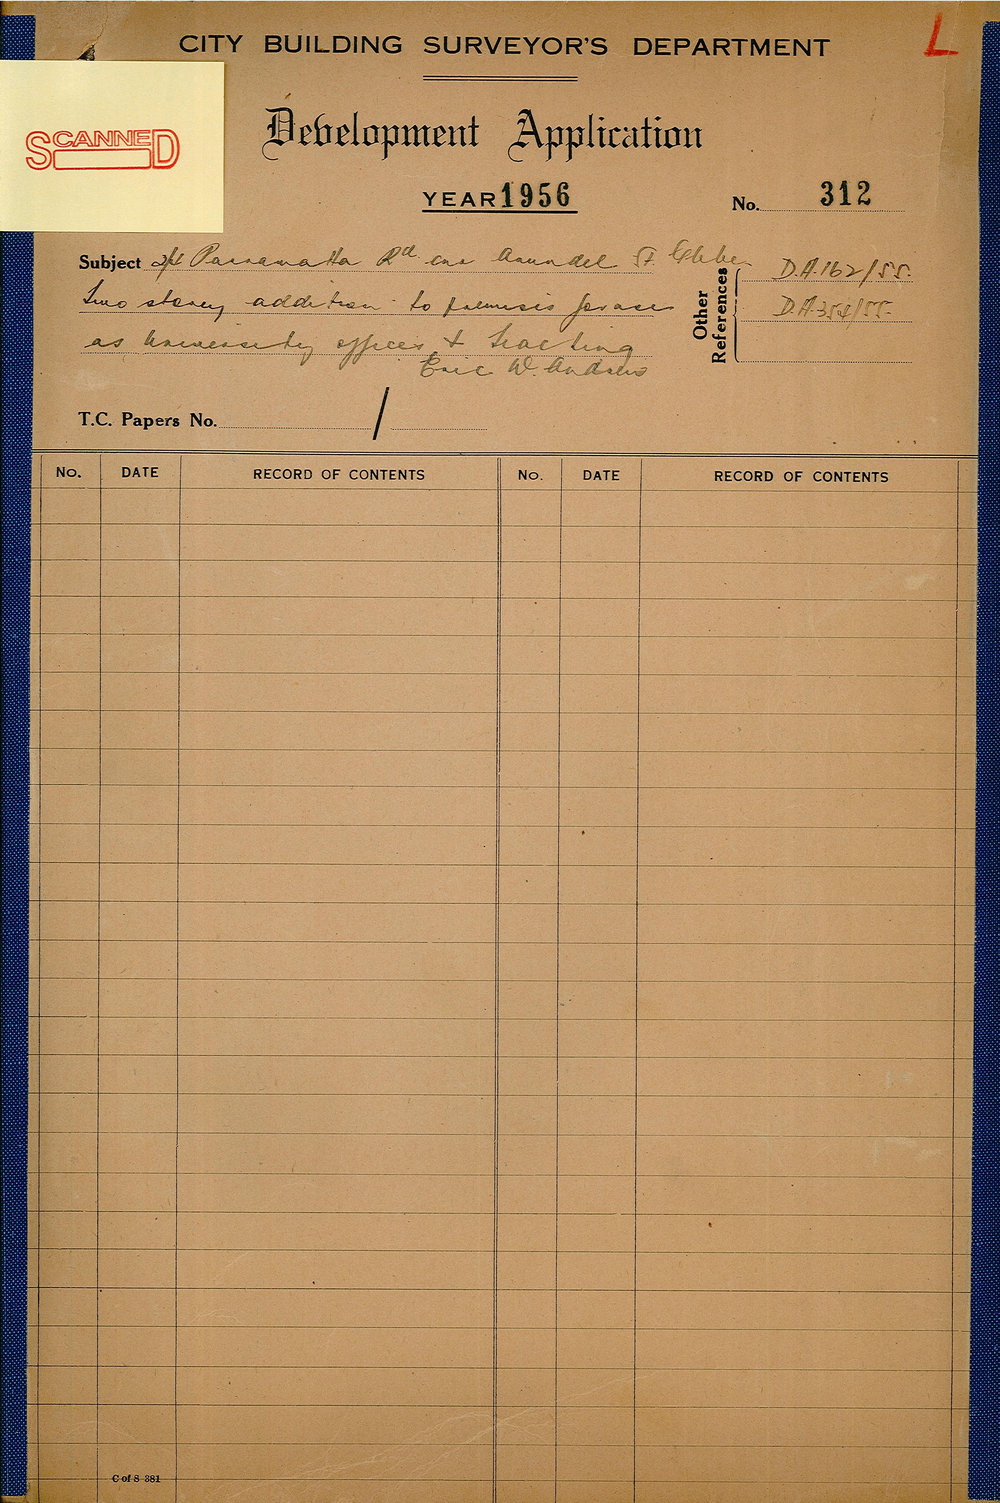 CITY BUILDING SURVEYOR'S DEPARTMENT
L
SCANNED
Development Application
YEAR 1956
No. 312
Subject Parramatta Rd cnr Arundel St Glebe
two storey addition to premises for use
as University offices & teaching
Eric W. Andrew
Other References
D.A.162/55.
D.A.354/55.
T.C. Papers No. /
No. DATE RECORD OF CONTENTS No. DATE RECORD OF CONTENTS
C of S 381